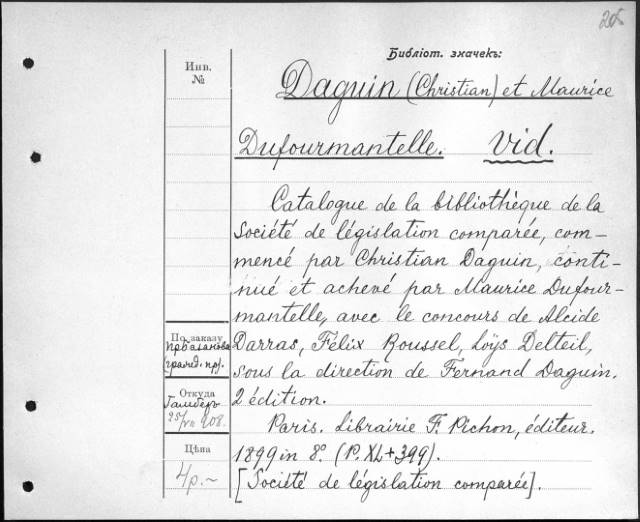 Библіот. значекъ:
Инв.
№
Daguin (Christian) et Maurice
Dufourmantelle. Vid.
Catalogue de la bibliothèque de la
Société de législation comparée, com-
mencé par Christian Daguin, conti-
nué et achevé par Maurice Dufour-
mantelle, avec le concours de Alcide
Darras, Félix Roussel, Loÿs Delteil,
sous la direction de Fernand Daguin.
2 édition.
Paris. Librairie F. Pichon, éditeur.
1899 in 8º. (P. XL + 399).
[Société de législation comparée].
По заказу
(гражд. пр).
Откуда
25/VII 908.
Цѣна
4 р. ~